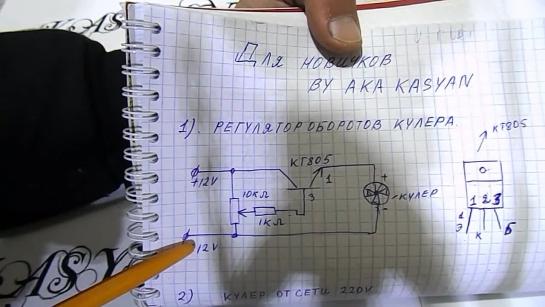 Для новичков
BY AKA KASYAN
1). РЕГУЛЯТОР ОБОРОТОВ КУЛЕРА.
КТ805
КТ805
+12V
1
3
10КΩ
1КΩ
+
-
КУЛЕР
1 2 3
1
Э
К
Б
-12V
2) КУЛЕР ОТ СЕТИ 220V